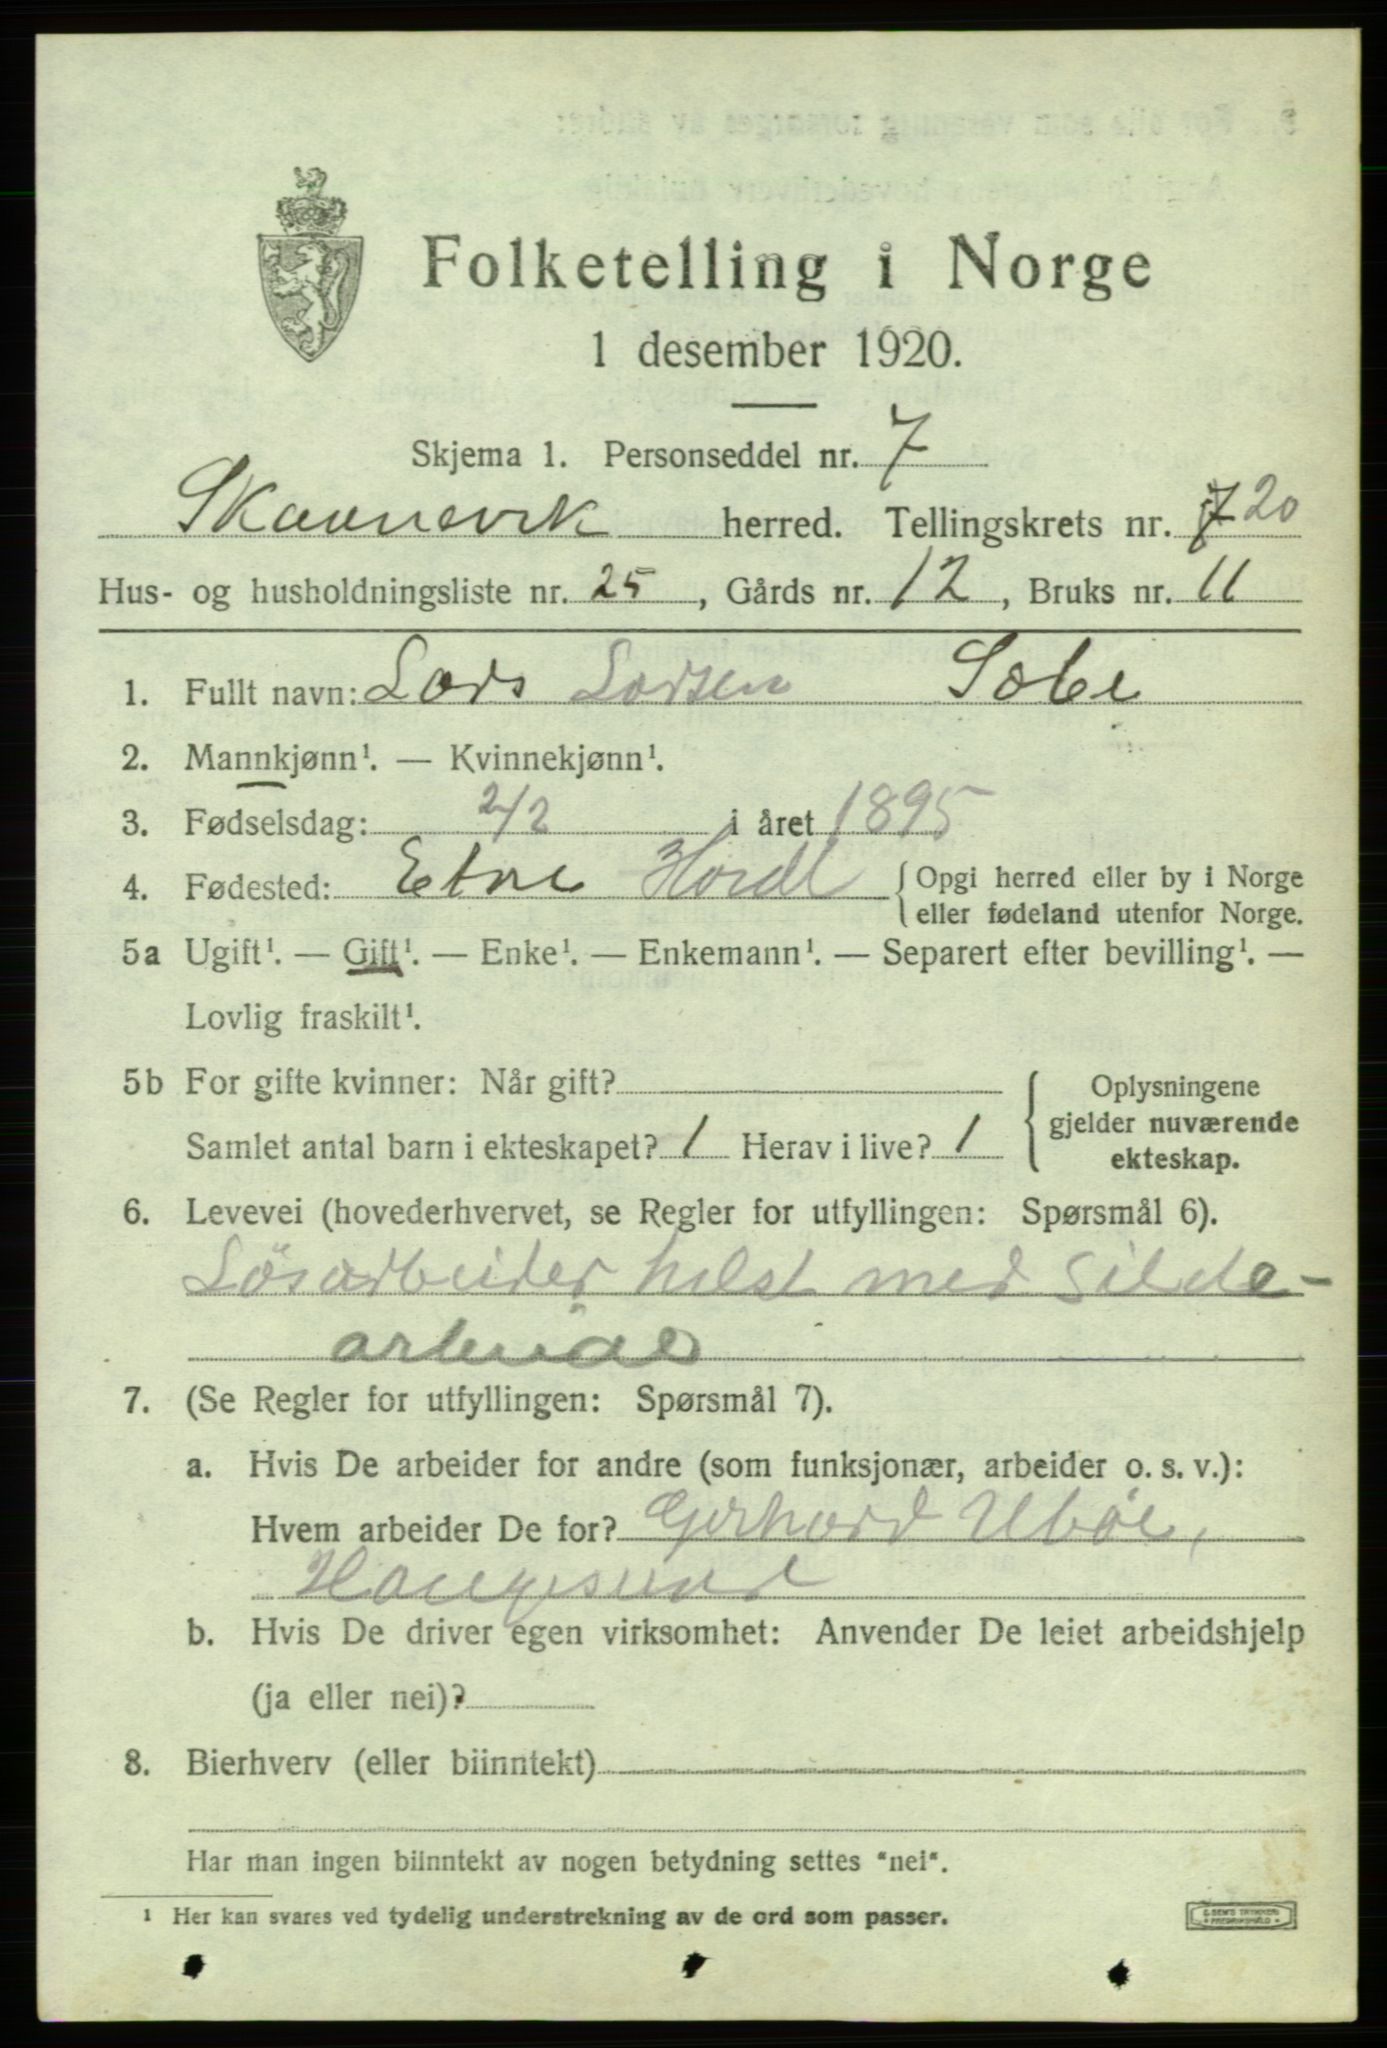 Folketelling i Norge
1 desember 1920.
Skjema 1. Personseddel nr. 7
Skaanevik herred. Tellingskrets nr. 7 20
Hus- og husholdningsliste nr. 25, Gårds nr. 12, Bruks nr. 11
1. Fullt navn: Lars Larsen Sæbe
2. Mannkjønn¹. — Kvinnekjønn¹.
3. Fødselsdag: 2/2 i året 1895
4. Fødested: Etne Hordl { Opgi herred eller by i Norge
eller fødeland utenfor Norge.
5a Ugift¹. — Gift¹. — Enke¹. — Enkemann¹. — Separert efter bevilling¹. —
Lovlig fraskilt¹.
5b For gifte kvinner: Når gift?
Samlet antal barn i ekteskapet? 1 Herav i live? 1
{ Oplysningene
gjelder nuværende
ekteskap.
6. Levevei (hovederhvervet, se Regler for utfyllingen: Spørsmål 6).
Lösarbeider helst med silde-
arbeide
7. (Se Regler for utfyllingen: Spørsmål 7).
a. Hvis De arbeider for andre (som funksjonær, arbeider o. s. v.):
Hvem arbeider De for? Gerhard Uböe,
Haugesund
b. Hvis De driver egen virksomhet: Anvender De leiet arbeidshjelp
(ja eller nei)?
8. Bierhverv (eller biinntekt)
Har man ingen biinntekt av nogen betydning settes "nei".
¹ Her kan svares ved tydelig understrekning av de ord som passer.